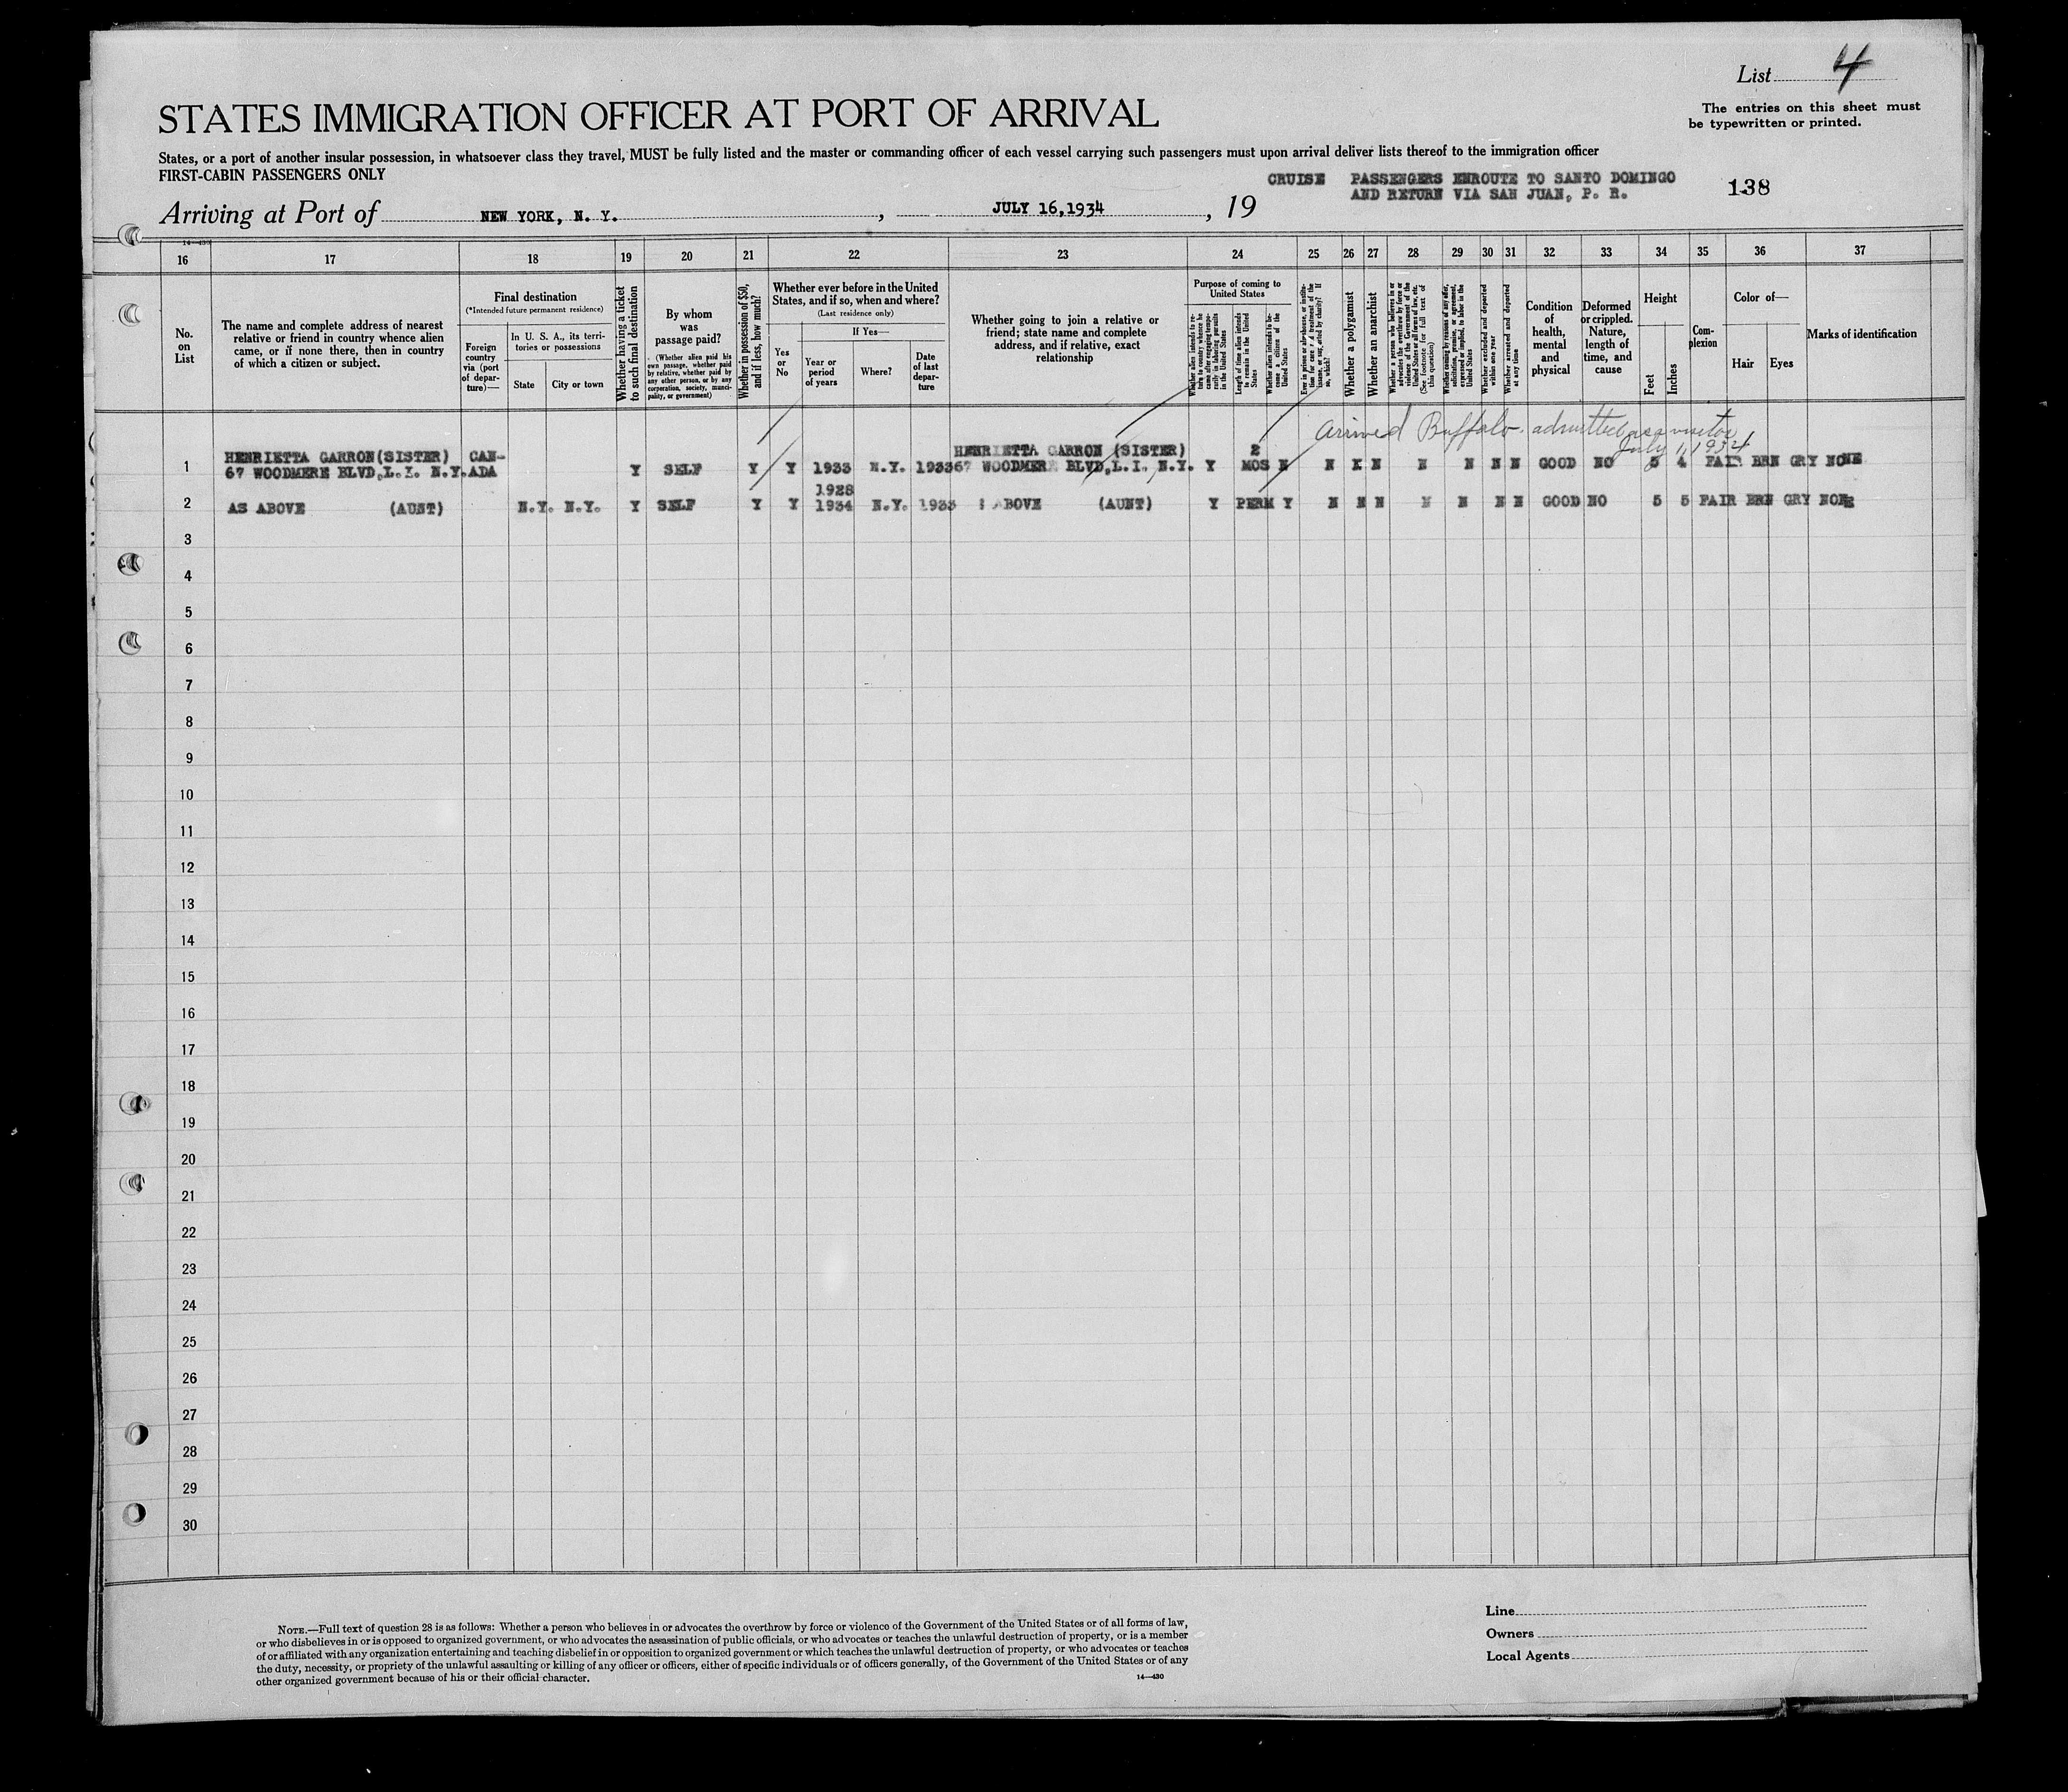 List 4
The entries on this sheet must
be typewritten or printed.
STATES IMMIGRATION OFFICER AT PORT OF ARRIVAL
States, or a port of another insular possession, in whatsoever class they travel, MUST be fully listed and the master or commanding officer of each vessel carrying such passengers must upon arrival deliver lists thereof to the immigration officer
FIRST-CABIN PASSENGERS ONLY
CRUISE PASSENGERS ENROUTE TO SANTO DOMINGO
AND RETURN VIA SAN JUAN, P. R.
138
Arriving at Port of NEW YORK, N. Y., JULY 16,1934, 19
14—430
16 17 18 19 20 21 22 23 24 25 26 27 28 29 30 31 32 33 34 35 36 37
No.
on
List
The name and complete address of nearest
relative or friend in country whence alien
came, or if none there, then in country
of which a citizen or subject.
Final destination
(*Intended future permanent residence)
Foreign
country
via (port
of depar-
ture)—
In U. S. A., its terri-
tories or possessions
State
City or town
Whether having a ticket
to such final destination
By whom
was
passage paid?
(Whether alien paid his
own passage, whether paid
by relative, whether paid by
any other person, or by any
corporation, society, munci-
pality, or government)
Whether in possession of $50,
and if less, how much?
Whether ever before in the United
States, and if so, when and where?
(Last residence only)
Yes
or
No
If Yes—
Year or
period
of years
Where?
Date
of last
depar-
ture
Whether going to join a relative or
friend; state name and complete
address, and if relative, exact
relationship
Purpose of coming to
United States
Length of time alien intends
to remain in the United
States
Whether alien intends to be-
come a citizen of the
United States
Whether a polygamist
Whether an anarchist
Whether excluded and deported
within one year
Whether arrested and deported
at any time
Condition
of
health,
mental
and
physical
Deformed
or crippled.
Nature,
length of
time, and
cause
Height
Feet
Inches
Com-
plexion
Color of—
Hair
Eyes
Marks of identification
Arrived Buffalo. admitted as a visitor
July 1, 1934
HENRIETTA GARRON(SISTER) CAN- HENRIETTA GARRON (SISTER) 2
1 67 WOODMERE BLVD,L.I. N.Y.ADA Y SELF Y Y 1933 N.Y. 1933 67 WOODMERE BLVD,L.I, N.Y. Y MOS N N N N N N N N GOOD NO 5 4 FAIR BRN GRY NONE
1928
2 AS ABOVE (AUNT) N.Y. N.Y. Y SELF Y Y 1934 N.Y. 1933 ABOVE (AUNT) Y PERM Y N N N N N N N GOOD NO 5 5 FAIR BRN GRY NONE
3
4
5
6
7
8
9
10
11
12
13
14
15
16
17
18
19
20
21
22
23
24
25
26
27
28
29
30
NOTE.—Full text of question 28 is as follows: Whether a person who believes in or advocates the overthrow by force or violence of the Government of the United States or of all forms of law,
or who disbelieves in or is opposed to organized government, or who advocates the assassination of public officials, or who advocates or teaches the unlawful destruction of property, or is a member
of or affiliated with any organization entertaining and teaching disbelief in or opposition to organized government or which teaches the unlawful destruction of property, or who advocates or teaches
the duty, necessity, or propriety of the unlawful assaulting or killing of any officer or officers, either of specific individuals or of officers generally, of the Government of the United States or of any
other organized government because of his or their official character.
14—430
Line
Owners
Local Agents